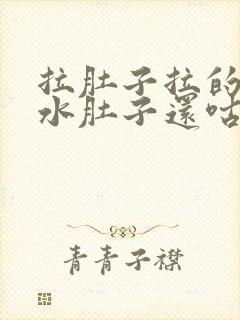 拉肚子拉的
水肚子還咕
青青子襟